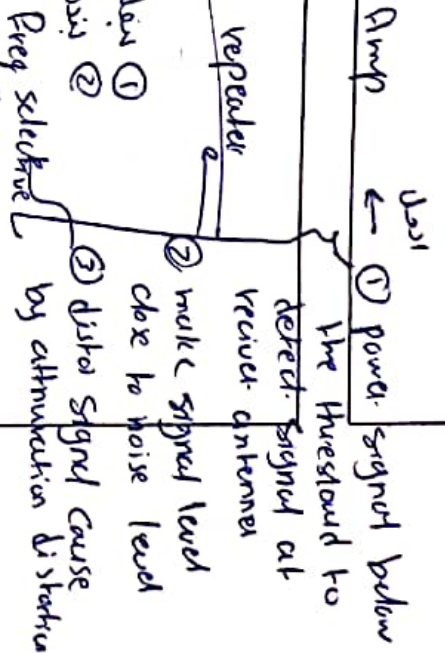 Amp
الحل
← ① power signal below
the threslould to
detect signal at
reciver antenner
repeater
② make signal level
close to noise level
①
②
③ distor signal cause
by attnuration distortion
Freq selective